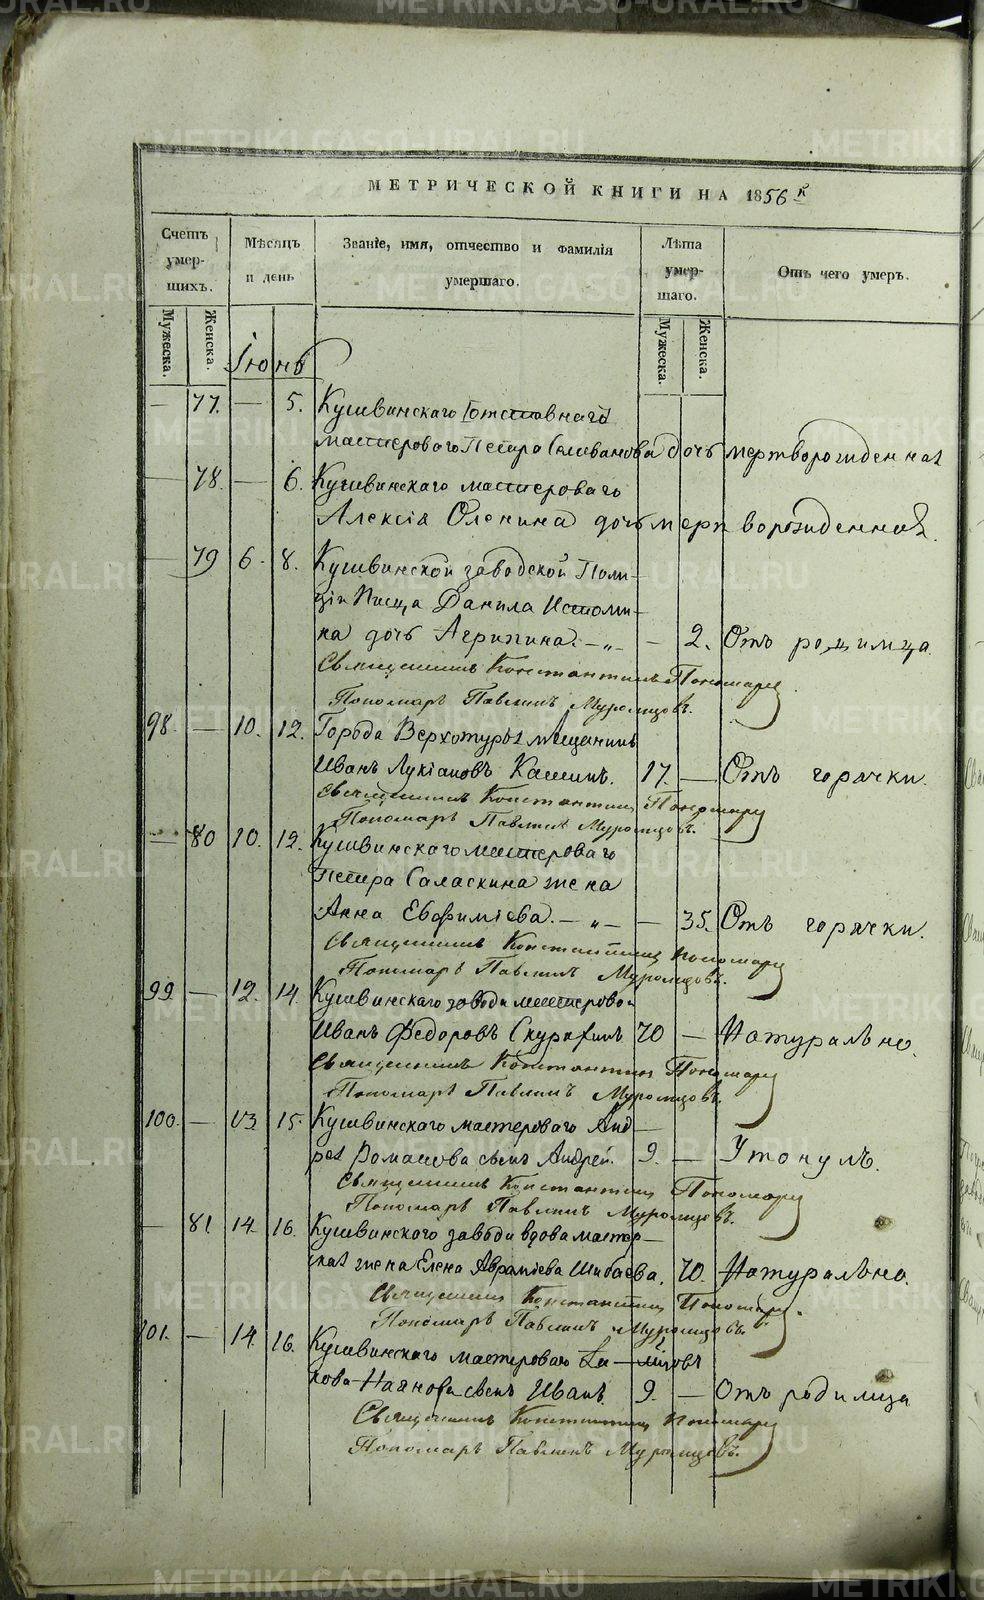 МЕТРИЧЕСКОЙ КНИГИ НА 1856 К
Счетъ умер- шихъ.
Мѣсяцъ и день
Званіе, имя, отчество и фамилія умершаго.
Лѣта умер- шаго.
Отъ чего умеръ.
Мужеска.
Женска.
Мужеска.
Женска.
Іюнь
— 77. — 5. Кушвинскаго отставнаго
мастероваго Петра Селиванова дочь мертворожденная
— 78. — 6. Кушвинскаго мастероваго
Алексія Оленина дочь мертворожденная.
— 79 6. 8. Кушвинской заводской Поли-
ціи Писца Данила Истоми-
на дочь Агрипина. — „ — — 2. Отъ родимца.
Священникъ Константинъ Пономаревъ.
Пономарь Павлинъ Муромцовъ.
98. — 10. 12. Города Верхотурья мѣщанинъ
Иванъ Лукіановъ Кашинъ. 17. — Отъ горячки.
Священникъ Константинъ Пономаревъ
Пономарь Павлинъ Муромцовъ.
— 80 10. 12. Кушвинскаго мастероваго
Петра Саласкина жена
Анна Евфиміева. — „ — — 35. Отъ горячки.
Священникъ Константинъ Пономаревъ
Пономарь Павлинъ Муромцовъ.
99. — 12. 14. Кушвинскаго завода мастеровой
Иванъ Федоровъ 70 — Натурально.
Священникъ Константинъ Пономаревъ
Пономарь Павлинъ Муромцовъ.
100. — 13 15. Кушвинскаго мастероваго Анд-
рея Ромашова сынъ Андрей. 9. — Утонулъ.
Священникъ Константинъ Пономаревъ
Пономарь Павлинъ Муромцовъ.
— 81. 14 16. Кушвинскаго завода вдова мастер-
ская жена Елена Авраміева Шибаева. 70. Натурально.
Священникъ Константинъ Пономаревъ.
Пономарь Павлинъ Муромцовъ.
101. — 14. 16. Кушвинскаго мастероваго
сынъ Иванъ. 9. — Отъ родимца
Священникъ Константинъ Пономаревъ
Пономарь Павлинъ Муромцовъ.
METRIKI.GASO-URAL.RU